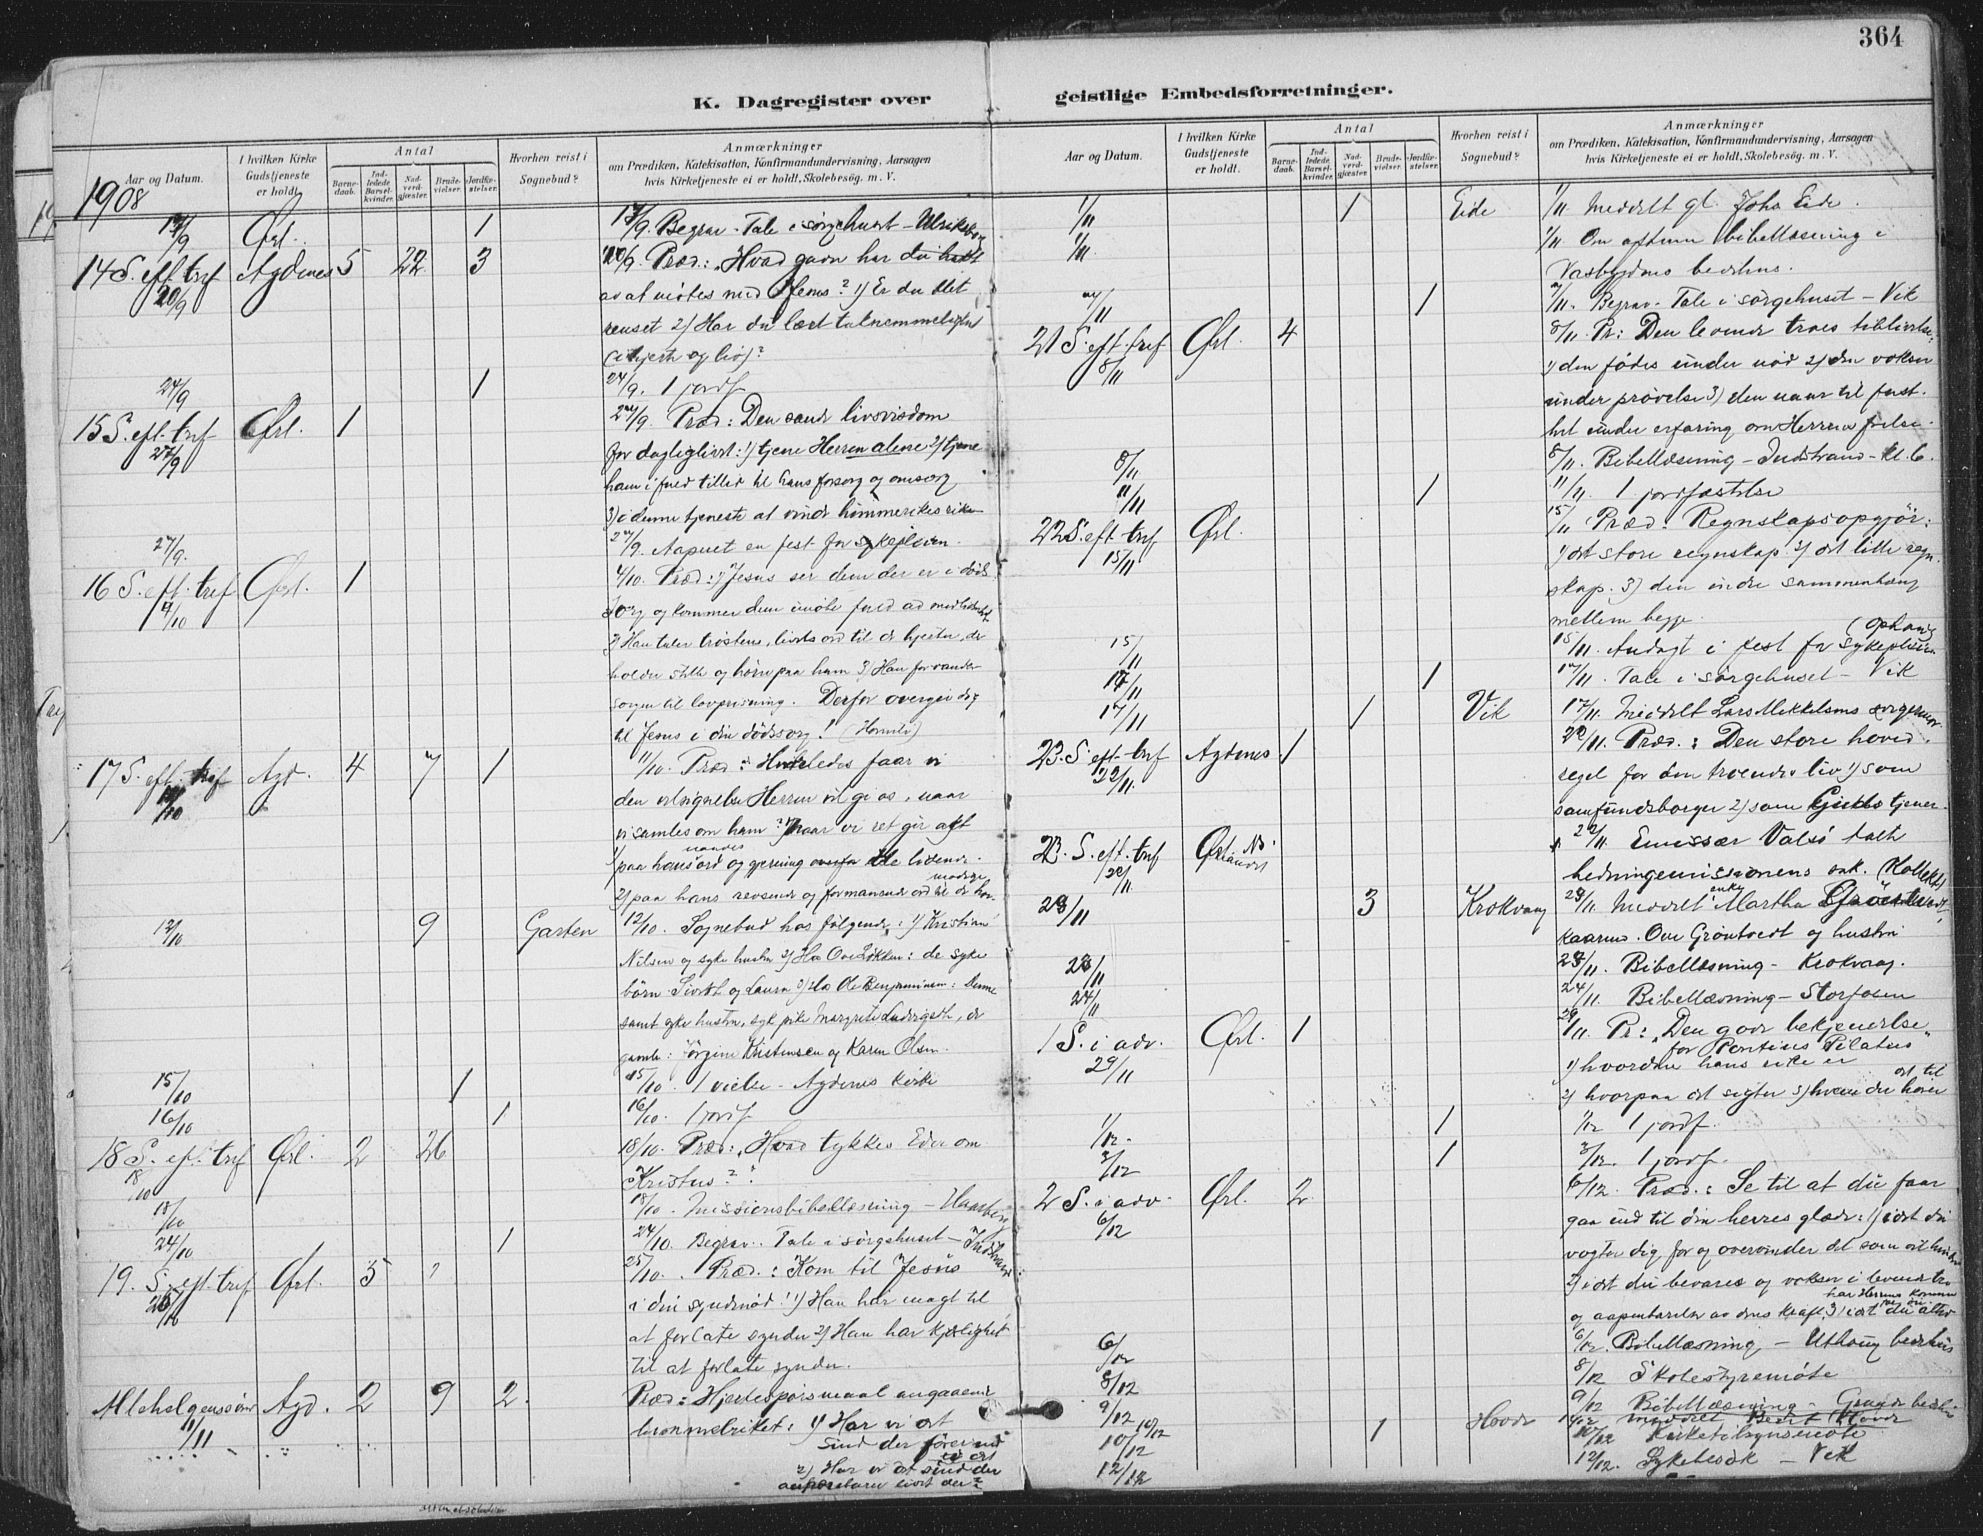 364
K. Dagregister over geistlige Embedsforretninger.
Aar og Datum.
I hvilken Kirke Gudstjeneste er holdt.
Antal
Barnedaab.
Indledede Barselkvinder.
Nadverdgjæster.
Brudevielser.
Jordfæstelser.
Hvorhen reist i Sognebud?
Anmærkninger
om Prædiken, Katekisation, Konfirmandundervisning, Aarsagen
hvis Kirketjeneste ei er holdt, Skolebesög. m. V.
1908
17/9 Ørl. 1 17/9. Begrav. Tale i sørgehuset
14 S. eft. tref 20/9 Agdenes 5 22 3 20/9. Præd.: "Hvad gavn har du havt
av at møtes med Jesus? 1) Er du blet
renset 2) Har du lært taknemmelighet
(i hjerte og liv)?
24/9 1 24/9. 1 jordf.
15 S. eft. tref 27/9 Ørl. 1 27/9. Præd: Den sande livsvisdom
for dagliglivet: 1) tjene Herren alene 2) tjene
ham i fuld tillid til hans forsorg og omsorg
3) i denne tjeneste at vinde himmerikes rike
27/9. 27/9. Aapnet en fest for sykepleien.
16 S. eft. tref 4/10 Ørl. 1 4/10. Præd: 1) Jesus ser dem der er i döds
sorg og kommer dem imøte
2) Han taler trøstens, livets ord til de hjerter, der
holder stille og hører paa ham 3) Han forvandler
sorgen til lovprisning. Derfor overgiv dig
til Jesus i din dödssorg!
17 S. eft. tref 11/10 Agd. 4 7 1 11/10. Præd: Hvorledes faar vi
den velsignelse Herren vil gi os, naar
vi samles om ham? Naar vi ret gir agt
1) paa hans naades ord og gjerning de lidende.
2) paa hans revsende og formanende ord til de hovmodige
12/10 9 Garten 12/10. Sognebud hos følgende: 1) Kristian
Nilsen og syke hustru 2) Hos Ove Løkken: de syke
børn Sivert og Laura 3) Hos Ole Benjaminsen: Denne
samt syke hustru, syk pike Margrete Ludvigsth, de
gamle: Jørgine Kristensen og Karen Olsen.
15/10 1 15/10. 1 vielse - Agdenes kirke
16/10 1 16/10. 1 jordf
18 S. eft. tref 18/10 Ørl. 2 26 18/10. Præd: "Hvad tykkes Eder om
Kristus"?
18/10 18/10. Missionsbibellæsning -
24/10 1 24/10. Begrav. Tale i sörgehuset - Indstrand
19. S. eft. tref 25/10 Ørl. 5 25/10. Præd.: Kom til Jesus
i din syndenød! 1) Han har magt til
at forlate synder 2) Han har kjærlighet
til at forlate synder.
Allehelgenssøndag 1/11 Agd. 2 9 2 Præd: Hjertespørsmaal angaaende
himmelriket: 1) Har vi det
sind der
2) Har vi det
livet der?
1/11 1 Eide 1/11. Meddelt gl. Joha Eide.
1/11 1/11 Om aftenen bibellæsning i
bedehus.
7/11 1 7/11. Begrav. Tale i sørgehuset - Vik
21 S. eft. tref 8/11 Ørl. 4 8/11. Pr: Den levende troes tilblivelse:
1) den fødes under nød 2) den vokser
under prøvelse 3) den naar til fast-
het under erfaring om Herrens frelse.
8/11 8/11. Bibellæsning - Indstrand - kl. 6.
11/11 1 11/11. 1 jordfæstelse
22 S. eft. tref 15/11 Ørl. 15/11 Præd. Regnskapsopgjör:
1) det store regnskap 2) det lille regn-
skap. 3) den indre sammenhæng
mellem begge.
15/11 15/11. Andagt i fest for Sykepleien
17/11 1 17/11. Tale i sørgehuset - Vik
17/11 1 Vik 17/11. Meddelt Lars Mikkelsens
23. S. eft. tref 22/11. Agdenes 1 22/11. Præd.: Den store hoved-
regel for den troendes liv 1) som
samfundsborger 2) som Guds tjener.
23. S. eft. tref 22/11 Ørlandet 22/11 Emissær Valsö talte
hedningemissionens sak. (Kollekt)
23/11 3 Krokvaag 23/11. Meddelt enke Martha
Ove Gröntvedt og hustru
23/11 23/11. Bibellæsning - Krokvaag.
24/11 24/11. Bibellæsning - Storfosen
1 S. i adv. 29/11 Ørl. 1 29/11. Pr: "Den gode bekjendelse
for Pontius Pilatus"
1) hvordan hans rike er
2) hvorpaa det sigter 3) hvem der hører det til
1/12. 1 1/12 1 jordf.
3/12 1 3/12. 1 jordf.
2 S. i adv. 6/12 Ørl. 2 6/12. Præd.: Se til at du faar
gaa ind til din herres glæde: 1) idet du
vogter dig for og overvinder det som vil hindre
2) idet du bevares og vokser i levende tro
og aapenbarelse av dens kraft 3) idet du altid har Herrens komme
6/12 6/12. Bibellæsning - Uthaug bedehus
8/12 8/12 Skolestyremöte
9/12 9/12 Bibellæsning - Grande bedehus
10/12 1 Hovde 10/12 meddelt Berit Hovde
10/12 10/12 Kirketilsynsmöte
12/12 12/12. Sykebesök - Vik